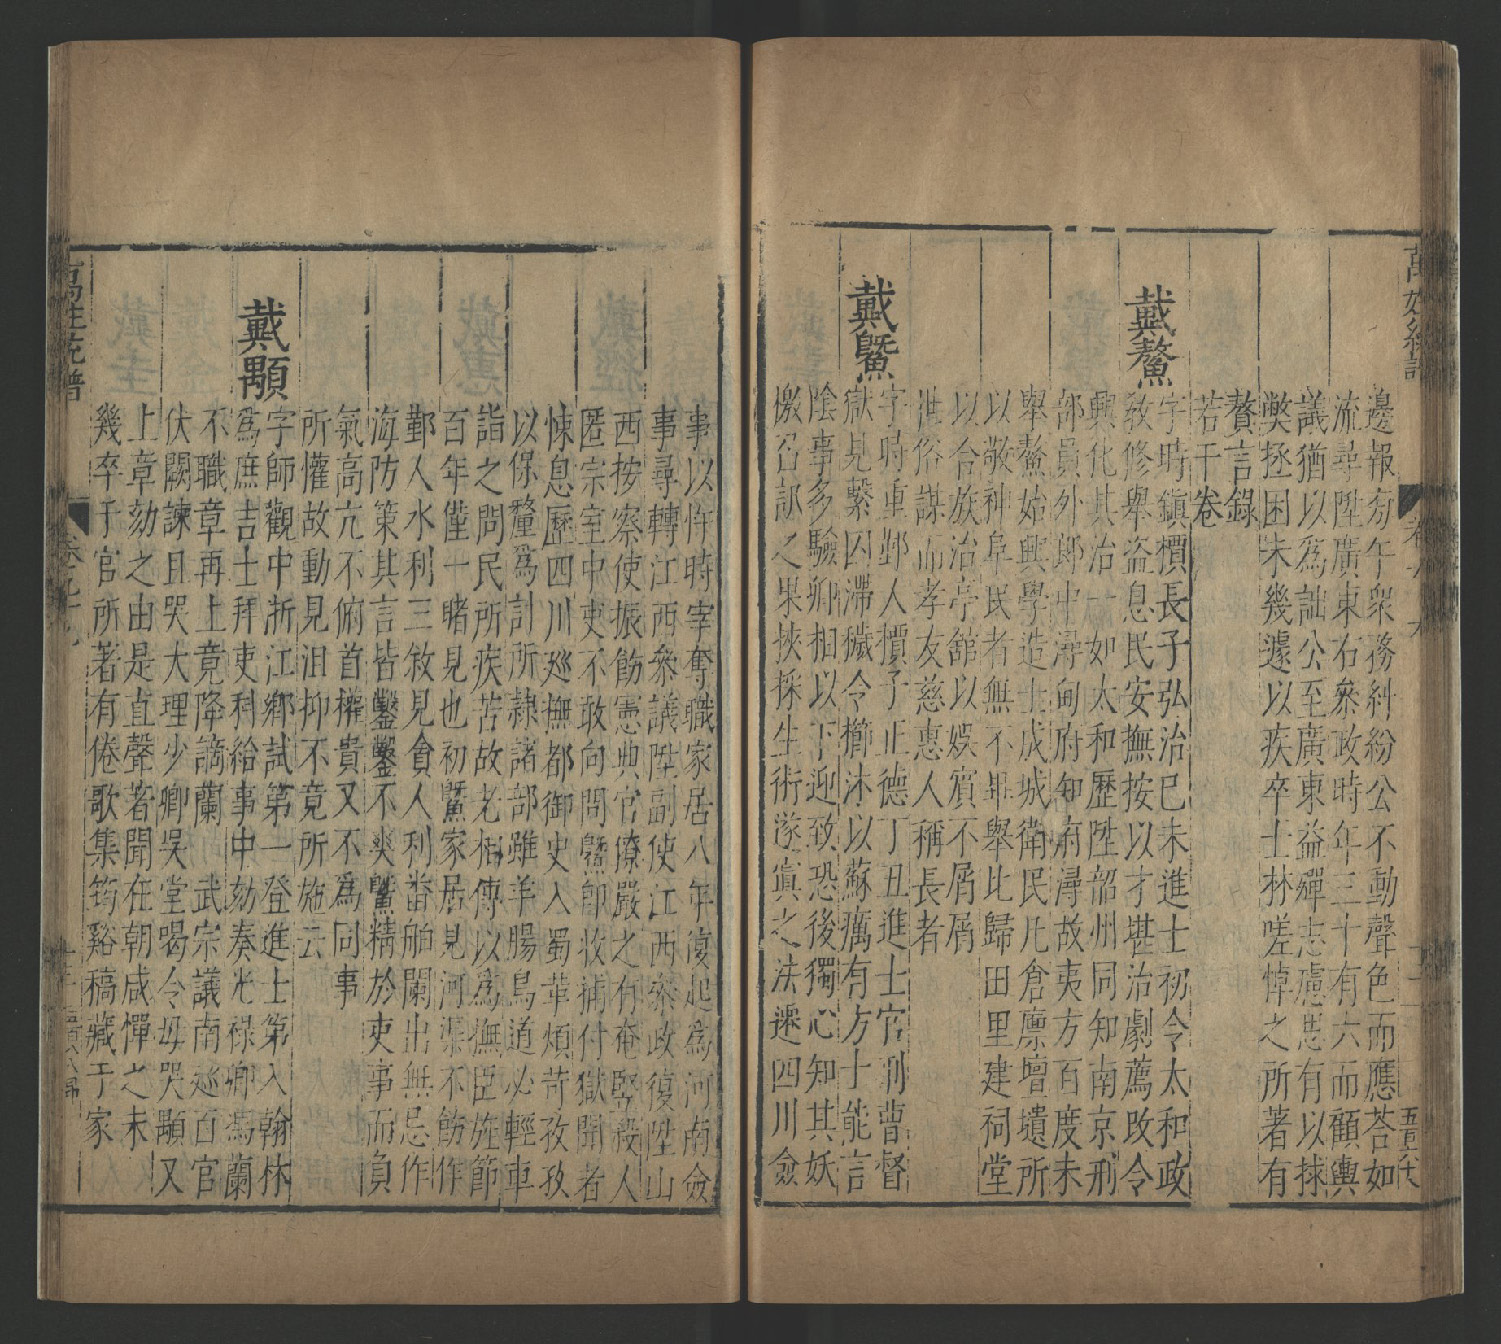 邊報旁午衆務糾紛公不動聲色而應荅如
流尋陞廣東右叅政時年三十有六而顧輿
議猶以爲詘公至廣東益殫志慮思有以捄
獘拯困未幾遽以疾卒士林嗟悼之所著有
贅言錄
若干卷
戴鰲
字時鎮櫝長子弘治己未進士初令太和政
敎修舉盗息民安撫按以才堪治劇薦改令
興化其治一如太和歷陞韶州同知南京刑
部員外郎中潯甸府知府潯故夷方百度未
舉鰲始興學造士成城衛民凡倉廪壇壝所
以敬神阜民者無不畢舉比歸田里建祠堂
以合族治亭舘以娛賓不屑屑
泄俗謀而孝友慈惠人稱長者
戴鱀
字時重鄞人櫝子正德丁丑進士官刑曹督
獄見繫囚滯穢令櫛沐以蘇癘有方士能言
陰事多驗卿相以下迎致恐後獨心知其妖
檄召訊之果挾採生術遂寘之法遷四川僉
事以忤時宰奪職家居八年復起爲河南僉
事尋轉江西叅議陞副使江西叅政復陞山
西按察使振飭憲典官僚嚴之有奄竪殺人
匿宗室中吏不敢向問鱀卽收捕付獄聞者
悚息歷四川廵撫都御史入蜀華煩苛孜孜
以保釐爲計所隷諸部雖羊腸鳥道必輕車
詣之問民所疾苦故老相傳以爲撫臣旌節
百年僅一睹見也初鱀家居見河渠不飭作
鄞人水利三敘見貪人利畨舶闌出無忌作
海防策其言皆鑿鑿不爽鱀精於吏事而負
氣高亢不俯首權貴又不爲同事
所懽故動見沮抑不竟所施云
戴顒
字師觀中浙江鄉試第一登進士第入翰林
爲庶吉士拜吏科給事中劾奏光禄卿蔿蘭
不職章再上竟降謫蘭　武宗議南廵百官
伏闕諫且哭大理少卿吳堂喝令毋哭顒又
上章劾之由是直聲著聞在朝咸憚之未
幾卒于官所著有倦歌集筠谿稿藏于家